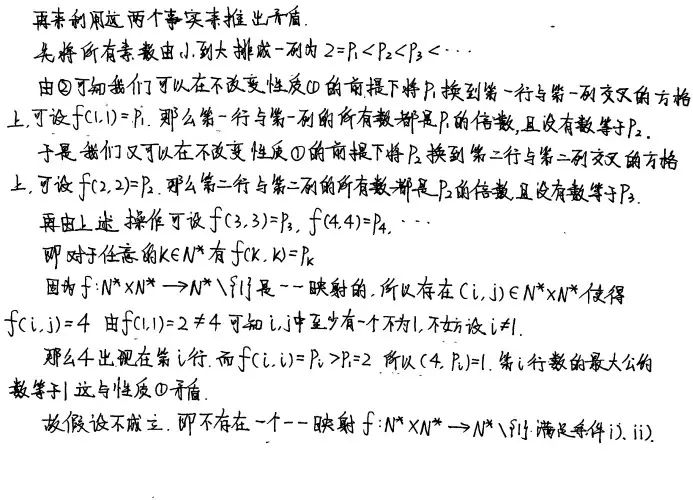 再来利用这两个事实来推出矛盾.
先将所有素数由小到大排成一列为 2=P₁<P₂<P₃<···
由②可知我们可以在不改变性质①的前提下将P₁换到第一行与第一列交叉的方格
上,可设f(1,1)=P₁. 那么第一行与第一列的所有数都是P₁的倍数,且没有数等于P₂.
于是我们又可以在不改变性质①的前提下将P₂换到第二行与第二列交叉的方格
上,可设f(2,2)=P₂. 那么第二行与第二列的所有数都是P₂的倍数,且没有数等于P₃.
再由上述操作可设 f(3,3)=P₃, f(4,4)=P₄, ···
即对于任意的K∈N* 有f(K,K)=Pₖ
因为 f:N*×N*→N*\{1}是一一映射的,所以存在(i,j)∈N*×N* 使得
f(i,j)=4 由f(1,1)=2≠4 可知 i,j中至少有一个不为1,不妨设i≠1.
那么4出现在第i行.而f(i,i)=Pᵢ>P₁=2 所以(4,Pᵢ)=1. 第i行数的最大公约
数等于1 这与性质①矛盾.
故假设不成立. 即不存在一个一一映射 f:N*×N*→N*\{1}满足条件i).ii).